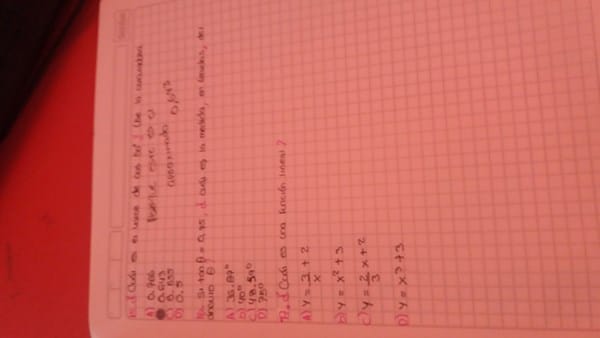 ¿Cuál es el valor de cos 50°? Use la calculadora
A) 0.766
0.643
C) 0.555
D) 0.5
Porque ese es el
aproximado 0,643
Si tan θ = 0.75, ¿cuál es la medida, en grados, del
ángulo θ?
A) 36.87°
B) 40°
C) 48.59°
D) 75°
12. ¿Cuál es una función lineal?
A) y = 3/x + 2
B) y = x² + 3
C) y = 2/3 x + 2
D) y = x³ + 3